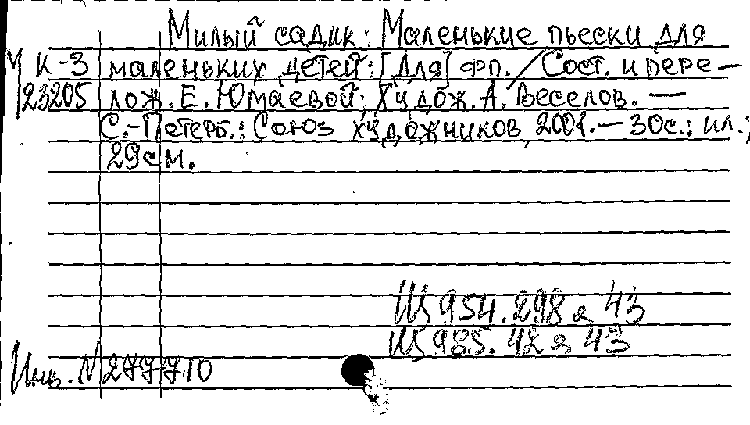 Милый садик: Маленькие пьески для
К-3 маленьких детей: [Для] фп. / Сост. и пере-
23205 лож. Е. Юмаевой; Худож. А. Веселов. —
С.-Петерб.: Союз художников, 2001. — 30с.: ил.;
29см.
Щ954.298я43
Щ985.42я43
Инв. М27770